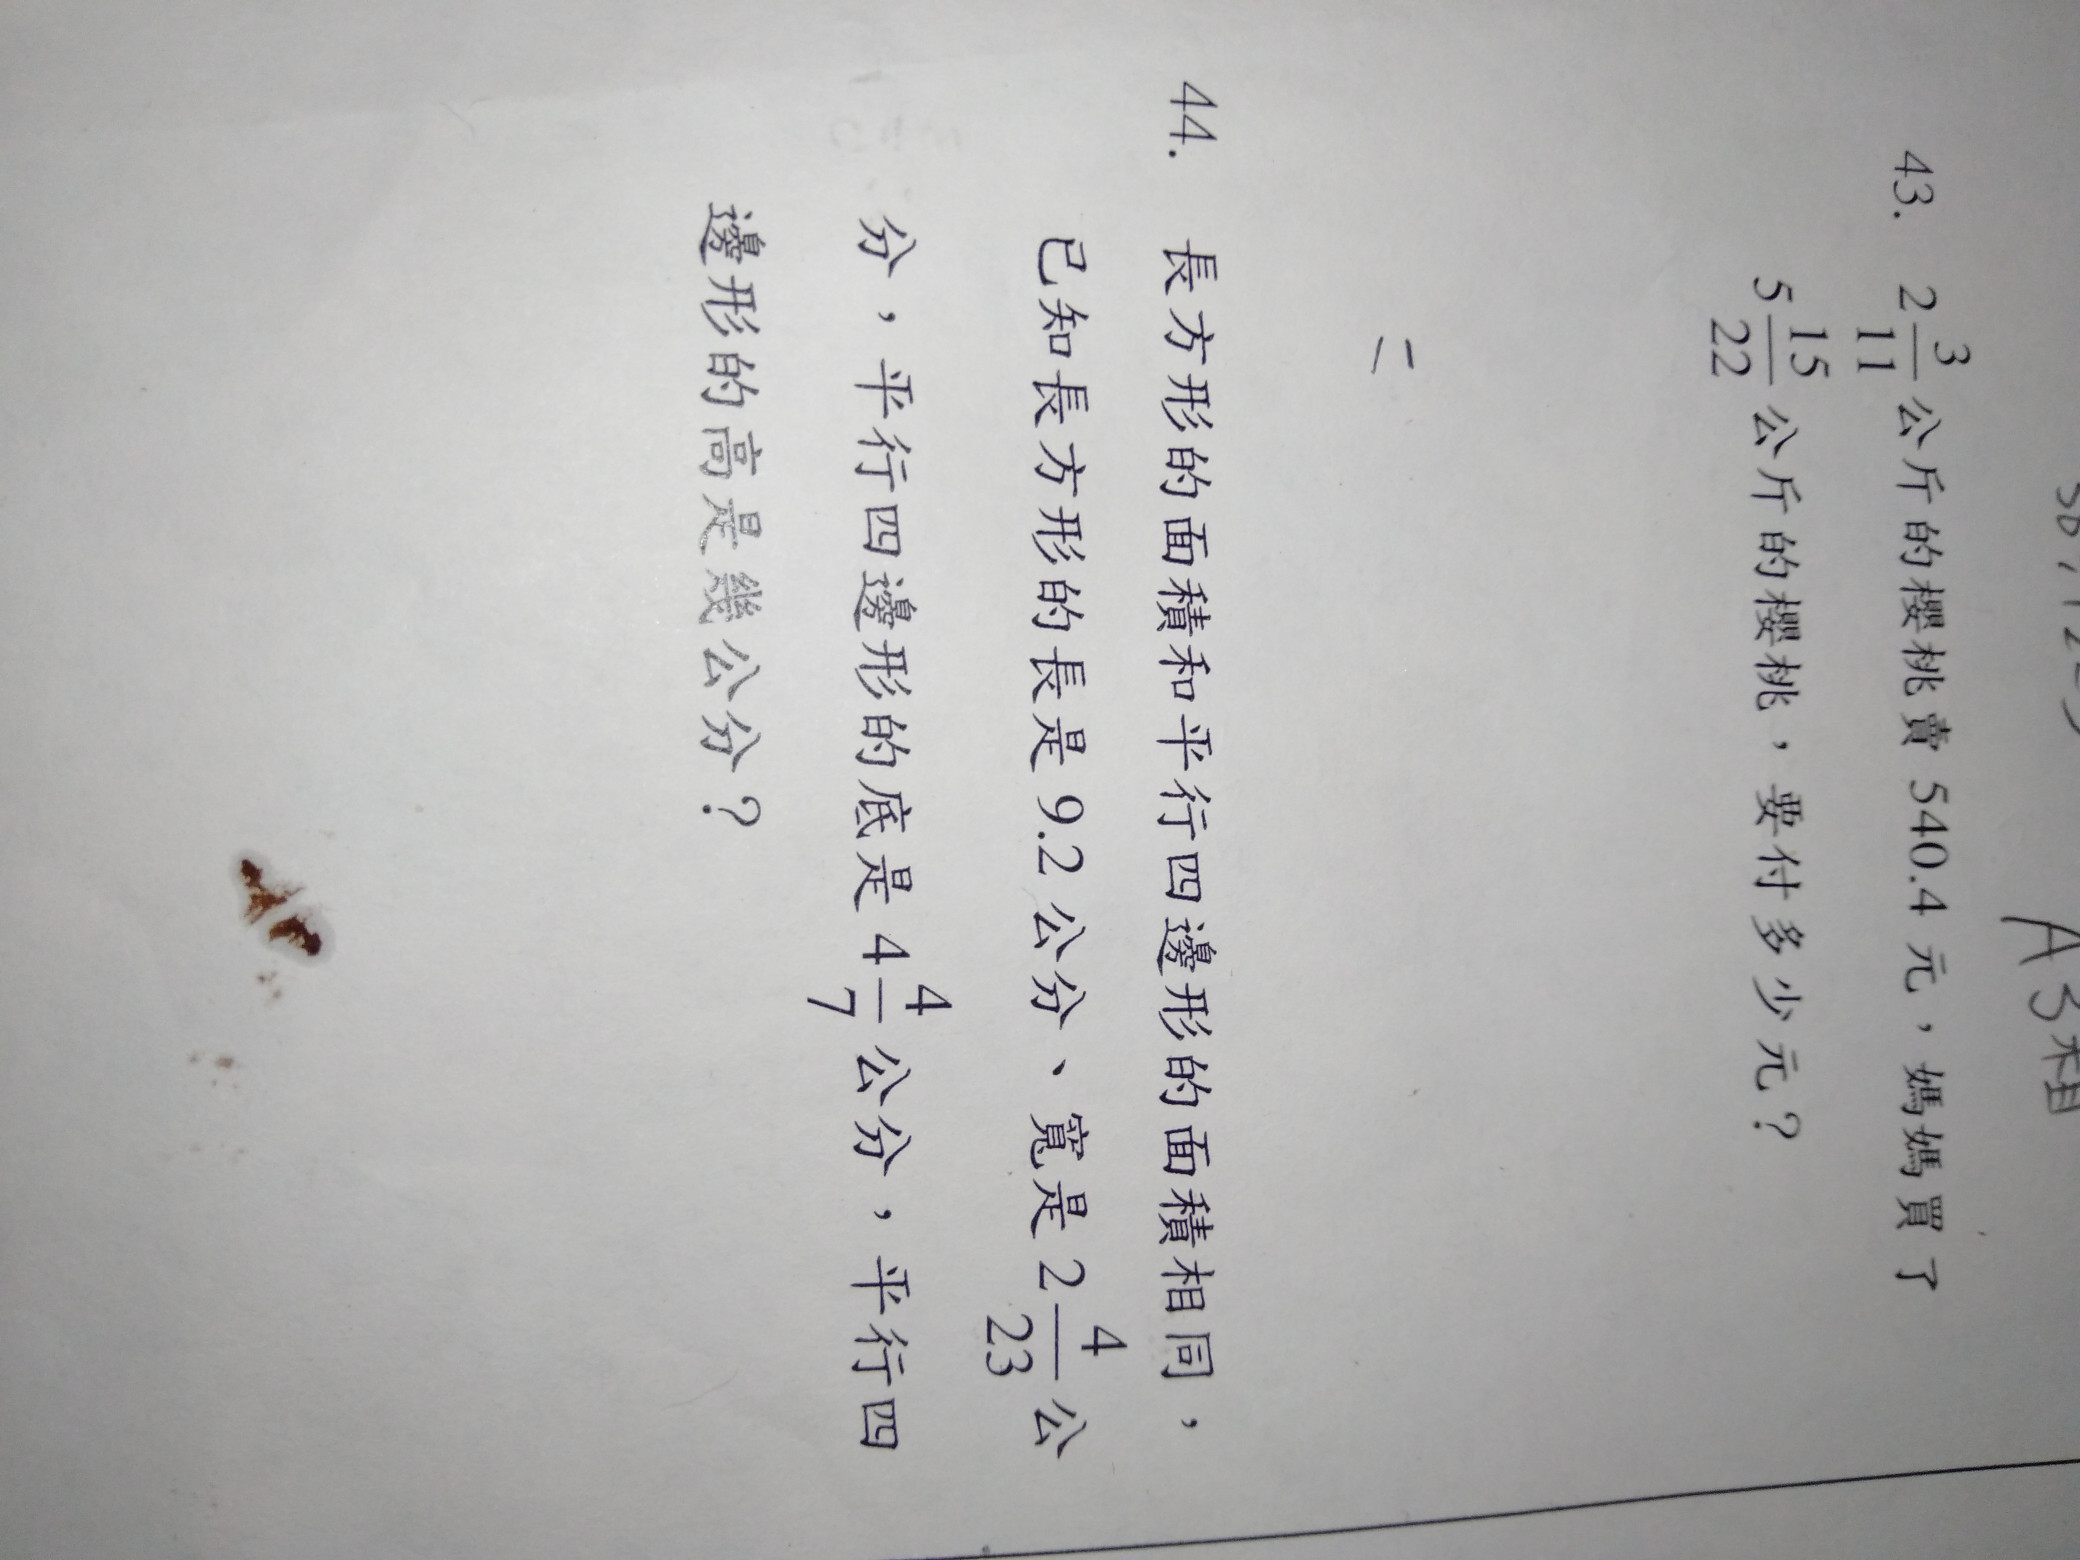 A3粗
43. 2 3/11 公斤的櫻桃賣 540.4 元，媽媽買了
5 15/22 公斤的櫻桃，要付多少元？
=
44. 長方形的面積和平行四邊形的面積相同，
已知長方形的長是 9.2 公分、寬是 2 4/23 公
分，平行四邊形的底是 4 4/7 公分，平行四
邊形的高是幾公分？